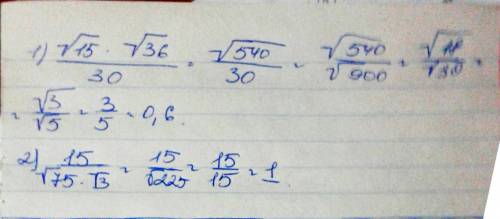 1) √15 · √36 / 30 = √540 / 30 = √540 / √900 =
= √3 / √5 = 3 / 5 = 0,6.
2) 15 / √75 · √3 = 15 / √225 = 15 / 15 = 1